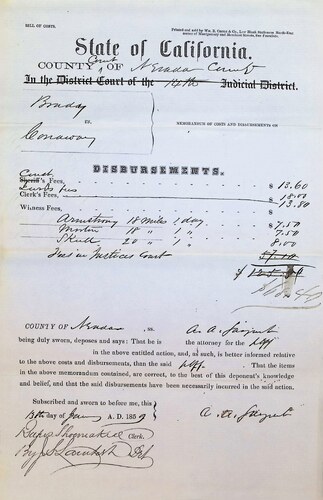 BILL OF COSTS.
Printed and sold by Wm. B.
State of California.
COUNTY Court OF Nevada County
In the District Court of the 14th Judicial District.
Brady
vs.
Conaway
MEMORANDUM OF COSTS AND DISBURSEMENTS ON
DISBURSEMENTS.
Sheriff's Fees, $ 13.60
Jurors fees 18.00
Clerk's Fees, $ 13.80
Witness Fees,
Armstrong 18 Miles 1 day $ 7.50
18 " 1 " 7.50
Skull 20 " 1 " 8.00
Fees in Justices Court
COUNTY OF Nevada ss. A. A. Sargent
being duly sworn, deposes and says: That he is the attorney for the plff
in the above entitled action, and, as such, is better informed relative
to the above costs and disbursements, than the said plff. That the items
in the above memorandum contained, are correct, to the best of this deponent's knowledge
and belief, and that the said disbursements have been necessarily incurred in the said action.
Subscribed and sworn to before me, this
13th day of A. D. 1859
A. A. Sargent
Rufus Shoemaker Clerk.
By